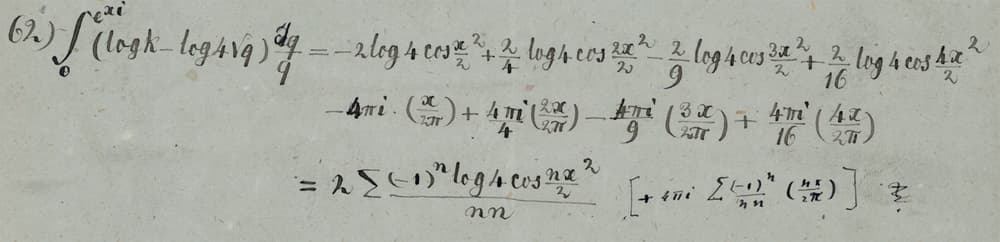 62.) ∫₀^{e^{xi}} (log k − log 4√q) dq/q = −2 log 4 cos x/2 ² + 2/4 log 4 cos 2x/2 ² − 2/9 log 4 cos 3x/2 ² + 2/16 log 4 cos 4x/2 ²
− 4πi · (x/2π) + 4πi/4 (2x/2π) − 4πi/9 (3x/2π) + 4πi/16 (4x/2π)
= 2 Σ (−1)ⁿ log 4 cos nx/2 ² / nn [+ 4πi Σ (−1)ⁿ/nn (nx/2π)]